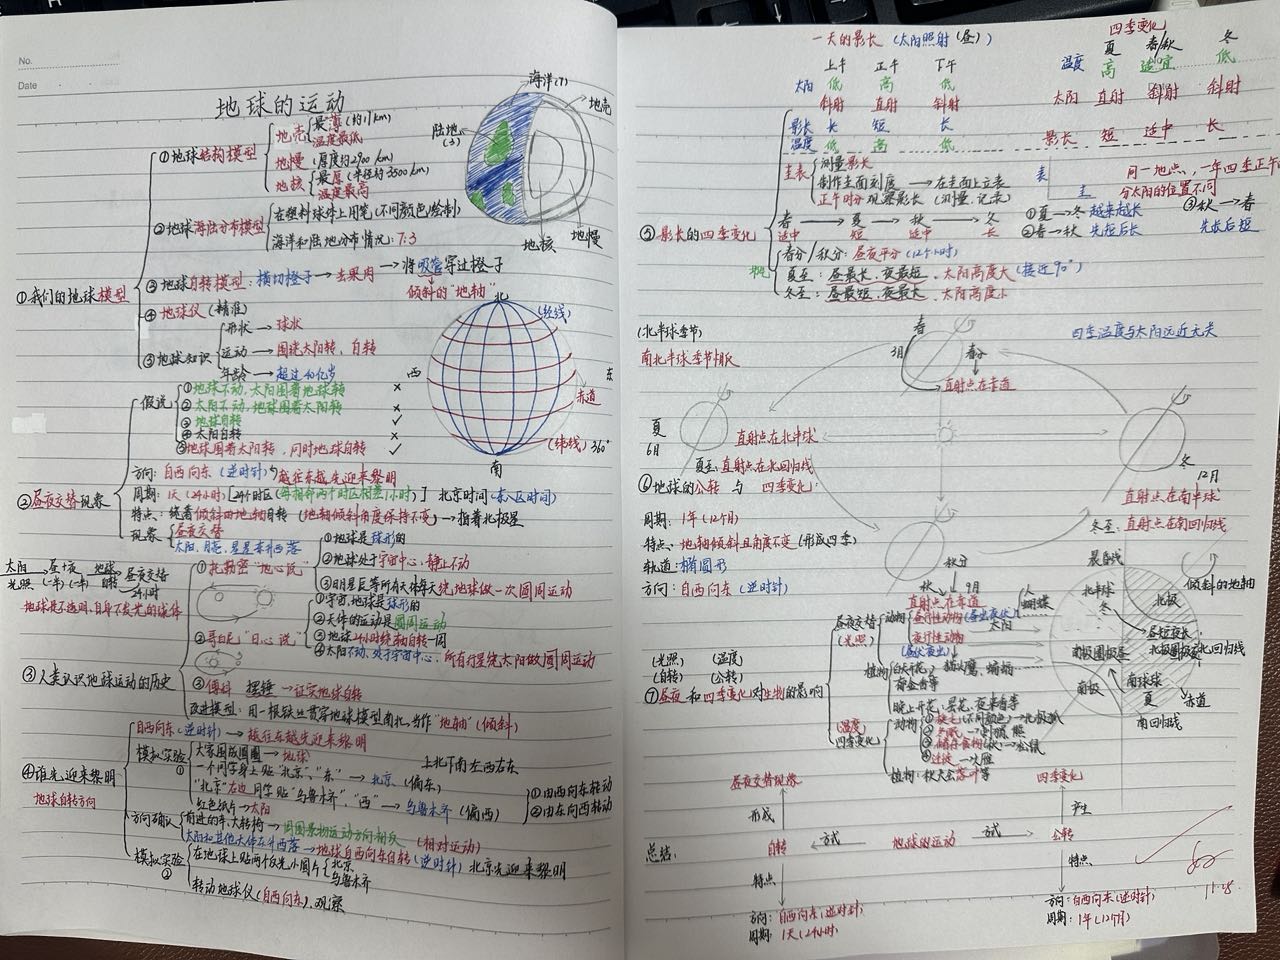 No.
Date
地球的运动
①我们的地球模型
①地球结构模型
地壳 最薄(约17km)
温度最低
地幔(厚度约2900 km)
地核 最厚(半径约3500km)
温度最高
海洋(7)
陆地(3)
地壳
地核
地幔
②地球海陆分布模型
在塑料球体上用笔(不同颜色绘制)
海洋和陆地分布情况:7:3
③地球自转模型:横切橙子→去果肉→将吸管穿过橙子
倾斜的"地轴"
④地球仪(精准)
⑤地球知识
形状→球状
运动→围绕太阳转、自转
年龄→超过40亿岁
北
(经线)
西
东
赤道
(纬线)360°
南
②昼夜交替现象
假说
①地球不动,太阳围着地球转 ×
②太阳不动,地球围着太阳转 ×
③地球自转 ✓
④太阳自转 ×
⑤地球围着太阳转,同时地球自转 ✓
方向:自西向东(逆时针)越往东越先迎来黎明
周期:1天(24小时)[24个时区(每相邻两个时区相差1小时)] 北京时间(东八区时间)
特点:绕着倾斜的地轴自转(地轴倾斜角度保持不变)→指着北极星
现象 昼夜交替
太阳、月亮、星星东升西落
太阳 昼+夜 地球 昼夜交替
光照 (一半)(一半) 自转 24小时
地球是不透明、自身不发光的球体
③人类认识地球运动的历史
①托勒密"地心说"
①地球是球形的
②地球处于宇宙中心,静止不动
③日月星辰等所有天体每天绕地球做一次圆周运动
②哥白尼"日心说"
①宇宙、地球是球形的
②天体的运动是圆周运动
③地球24小时绕轴自转一周
④太阳不动、处于宇宙中心,所有行星绕太阳做圆周运动
③傅科 摆锤→证实地球自转
改进模型:用一根铁丝贯穿地球模型南北,当作"地轴"(倾斜)
④谁先迎来黎明
地球自转方向
自西向东(逆时针)→越往东越先迎来黎明
模拟实验①
大家围成圆圈→地球
上北下南左西右东
一个同学身上贴"北京"、"东"→北京(偏东)
"北京"右边同学贴"乌鲁木齐"、"西"→乌鲁木齐(偏西)
①由西向东转动
②由东向西转动
红色纸片→太阳
方向确认
前进的车、大转椅→周围景物运动方向相反(相对运动)
太阳和其他天体东升西落→地球自西向东自转(逆时针)
模拟实验②
在地球上贴两个反光小圆片 北京
乌鲁木齐
北京先迎来黎明
转动地球仪(自西向东),观察
一天的影长(太阳照射(昼))
上午 正午 下午
太阳 低 高 低
斜射 直射 斜射
影长 长 短 长
温度 低 高 低
四季变化
夏 春/秋 冬
温度 高 适宜 低
太阳 直射 斜射 斜射
影长 短 适中 长
⑤影长的四季变化
圭表 测量影长
制作圭面刻度→在圭面上立表
正午时分观察影长(测量、记录)
表
圭
同一地点,一年四季正午
分太阳的位置不同
春→夏→秋→冬
适中 短 适中 长
①夏→冬 越来越长
②春→秋 先短后长
③秋→春
先长后短
春分/秋分:昼夜平分(12个小时)
夏至:昼最长、夜最短,太阳高度大(接近90°)
冬至:昼最短、夜最大,太阳高度小
(北半球季节)
南北半球季节相反
四季温度与太阳远近无关
春
3月
春分
直射点在赤道
夏
6月
直射点在北半球
夏至:直射点在北回归线
冬
12月
直射点在南半球
冬至:直射点在南回归线
秋分
秋 9月
直射点在赤道
⑥地球的公转与四季变化:
周期:1年(12个月)
特点:地轴倾斜且角度不变(形成四季)
轨道:椭圆形
方向:自西向东(逆时针)
晨昏线
倾斜的地轴
北半球
冬
北极
昼短夜长
北极圈极夜
北回归线
南极圈极昼
南极
南半球
夏
赤道
南回归线
⑦昼夜和四季变化对生物的影响
(光照) (温度)
(自转) (公转)
昼夜交替
(光照)
动物 昼行性动物(昼出夜伏) 人
蝴蝶
夜行性动物
(昼伏夜出)
猫头鹰、蝙蝠
植物 白天开花:太阳
郁金香等
晚上开花:昙花、夜来香等
(温度)
四季变化
动物 ①换毛(不同颜色)→北极狐
②冬眠→刺猬、熊
③储存食物(秋)→松鼠
④迁徙→大雁
植物:秋天会落叶等
昼夜交替现象 四季变化
形成 产生
总结: 自转 方式 地球的运动 方式 公转
特点 特点
方向:自西向东(逆时针)
周期:1天(24小时)
方向:自西向东(逆时针)
周期:1年(12个月)
11.15